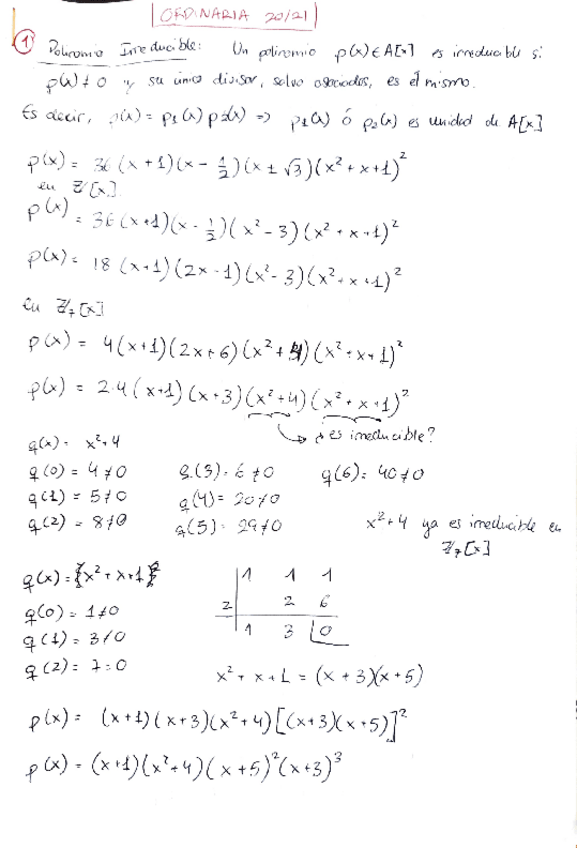 ORDINARIA 20/21
① Polinomio Irreducible: Un polinomio p(x)∈A[x] es irreducible si
p(x)≠0 y su único divisor, salvo asociados, es él mismo.
Es decir, p(x) = p₁(x) p₂(x) => p₁(x) ó p₂(x) es unidad de A[x]
p(x) = 36(x+1)(x-1/2)(x±√3)(x²+x+1)²
en Z[x]
p(x) = 36(x+1)(x-1/2)(x²-3)(x²+x+1)²
p(x) = 18(x+1)(2x-1)(x²-3)(x²+x+1)²
en Z₇[x]
p(x) = 4(x+1)(2x+6)(x²+4)(x²+x+1)²
p(x) = 2·4(x+1)(x+3)(x²+4)(x²+x+1)²
¿es irreducible?
q(x) = x²+4
q(0) = 4≠0 q(3) = 6≠0 q(6) = 40≠0
q(1) = 5≠0 q(4) = 20≠0
q(2) = 8≠0 q(5) = 29≠0 x²+4 ya es irreducible en
Z₇[x]
q(x) = x²+x+1 1 1 1
q(0) = 1≠0 2 2 6
q(1) = 3≠0 1 3 0
q(2) = 7=0 x²+x+1 = (x+3)(x+5)
p(x) = (x+1)(x+3)(x²+4)[(x+3)(x+5)]²
p(x) = (x+1)(x²+4)(x+5)²(x+3)³